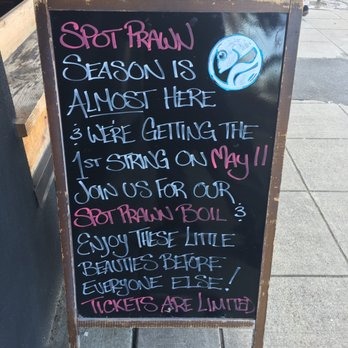 SPOT PRAWN
SEASON IS
ALMOST HERE
& WE'RE GETTING THE
1ST STRING ON MAY 11
JOIN US FOR OUR
SPOT PRAWN BOIL &
ENJOY THESE LITTLE
BEAUTIES BEFORE
EVERYONE ELSE!
TICKETS ARE LIMITED